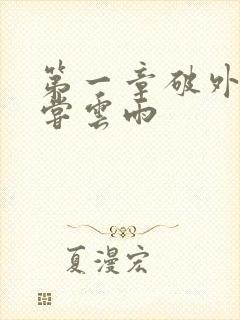 第一章破外
嘗雲雨
夏漫宏